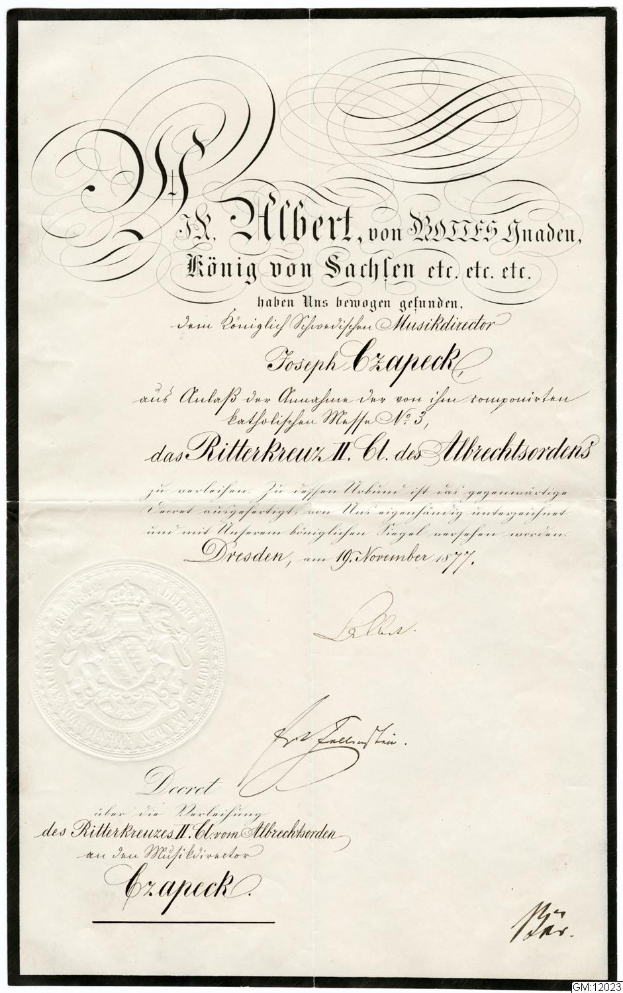 WIR, Albert, von GOTTES Gnaden,
König von Sachsen etc. etc. etc.
haben Uns bewogen gefunden,
dem Königlich Schwedischen Musikdirector
Joseph Czapeck,
aus Anlaß der Annahme der von ihm componirten
katholischen Messe No. 3,
das Ritterkreuz II. Cl. des Albrechtsordens
zu verleihen. Zu dessen Urkund ist das gegenwärtige
Decret ausgefertigt, von Uns eigenhändig unterzeichnet
und mit Unserem königlichen Siegel versehen worden.
Dresden, am 19. November 1877.
Albert.
Decret
über die Verleihung
des Ritterkreuzes II. Cl. vom Albrechtsorden
an den Musikdirector
Czapeck.
GM:12023